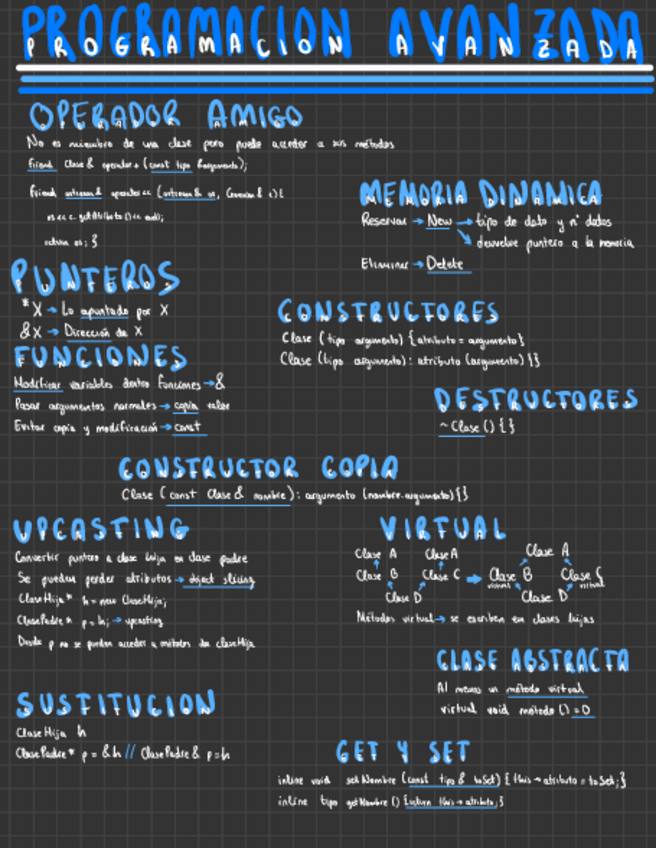 PROGRAMACION AVANZADA
OPERADOR AMIGO
No es miembro de una clase pero puede acceder a sus métodos
friend Clase& operator+ (const tipo &argumento);
friend ostream& operator<< (ostream& os,
os << c.getAtributo() << endl;
return os; }
MEMORIA DINAMICA
Reservar → New → tipo de dato y nº datos
↘ devuelve puntero a la memoria
Eliminar → Delete
PUNTEROS
*X → Lo apuntado por X
&X → Dirección de X
CONSTRUCTORES
Clase (tipo argumento) {atributo = argumento}
Clase (tipo argumento): atributo (argumento) {}
FUNCIONES
Modificar variables dentro funciones → &
Pasar argumentos normales → copia valor
Evitar copia y modificación → const
DESTRUCTORES
~Clase () {}
CONSTRUCTOR COPIA
Clase (const Clase& nombre): argumento (nombre.argumento) {}
UPCASTING
Convertir puntero a clase hija en clase padre
Se pueden perder atributos → object slicing
ClaseHija* h = new ClaseHija;
ClasePadre* p = h; → upcasting
Desde p no se pueden acceder a métodos de claseHija
VIRTUAL
Clase A Clase A Clase A
Clase B Clase C → Clase B Clase C
virtual virtual
Clase D Clase D
Métodos virtual → se escriben en clases hijas
CLASE ABSTRACTA
Al menos un método virtual
virtual void método () = 0
SUSTITUCION
ClaseHija h
ClasePadre* p = &h // ClasePadre& p=h
GET Y SET
inline void setNombre (const tipo& toSet) { this → atributo = toSet; }
inline tipo getNombre () {return this → atributo;}